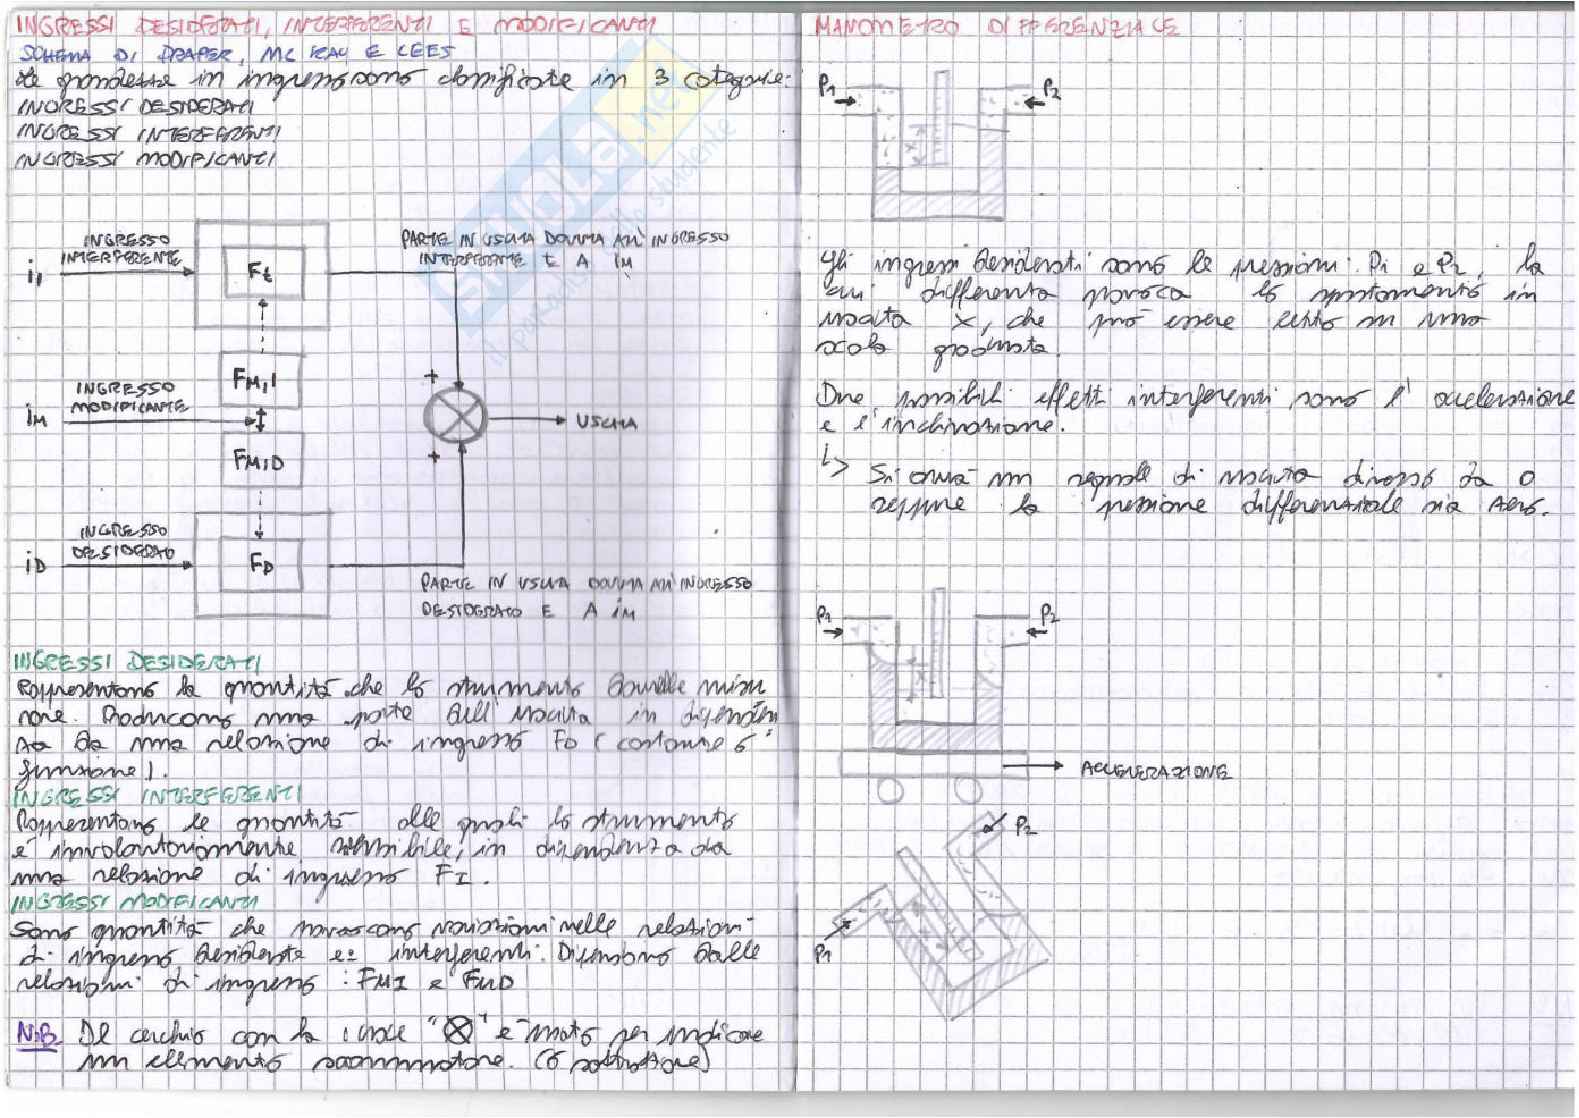 INGRESSI DESIDERATI, INTERFERENTI E MODIFICANTI
SCHEMA DI DRAPER, MC KAY E LEES
Le grandezze in ingresso sono classificate in 3 categorie:
INGRESSI DESIDERATI
INGRESSI INTERFERENTI
INGRESSI MODIFICANTI
INGRESSO
INTERFERENTE
iI
FI
PARTE IN USCITA DOVUTA ALL'INGRESSO
INTERFERENTE E A iM
FM,I
INGRESSO
MODIFICANTE
iM
+
USCITA
+
FM,D
INGRESSO
DESIDERATO
iD
FD
PARTE IN USCITA DOVUTA ALL'INGRESSO
DESIDERATO E A iM
INGRESSI DESIDERATI
Rappresentano la quantità che lo strumento dovrebbe misu
rare. Producono una parte dell'uscita in dipenden
za da una relazione di ingresso FD (costante o
funzione).
INGRESSI INTERFERENTI
Rappresentano le quantità alle quali lo strumento
è involontariamente sensibile, in dipendenza da
una relazione di ingresso FI.
INGRESSI MODIFICANTI
Sono quantità che provocano variazioni nelle relazioni
di ingresso desiderate e interferenti. Dipendono dalle
relazioni di ingresso: FMI e FMD
N.B. Il cerchio con la croce "⊗" è usato per indicare
un elemento sommatore. (o sottrazione)
MANOMETRO DIFFERENZIALE
P1
P2
Gli ingressi desiderati sono le pressioni P1 e P2, la
cui differenza provoca lo spostamento in
uscita x, che può essere letto su una
scala graduata.
Due possibili effetti interferenti sono l'accelerazione
e l'inclinazione.
↳ Si avrà un segnale di uscita diverso da 0
seppure la pressione differenziale sia zero.
P1
P2
ACCELERAZIONE
P2
P1
SKUOLA.net
il portale dello studente